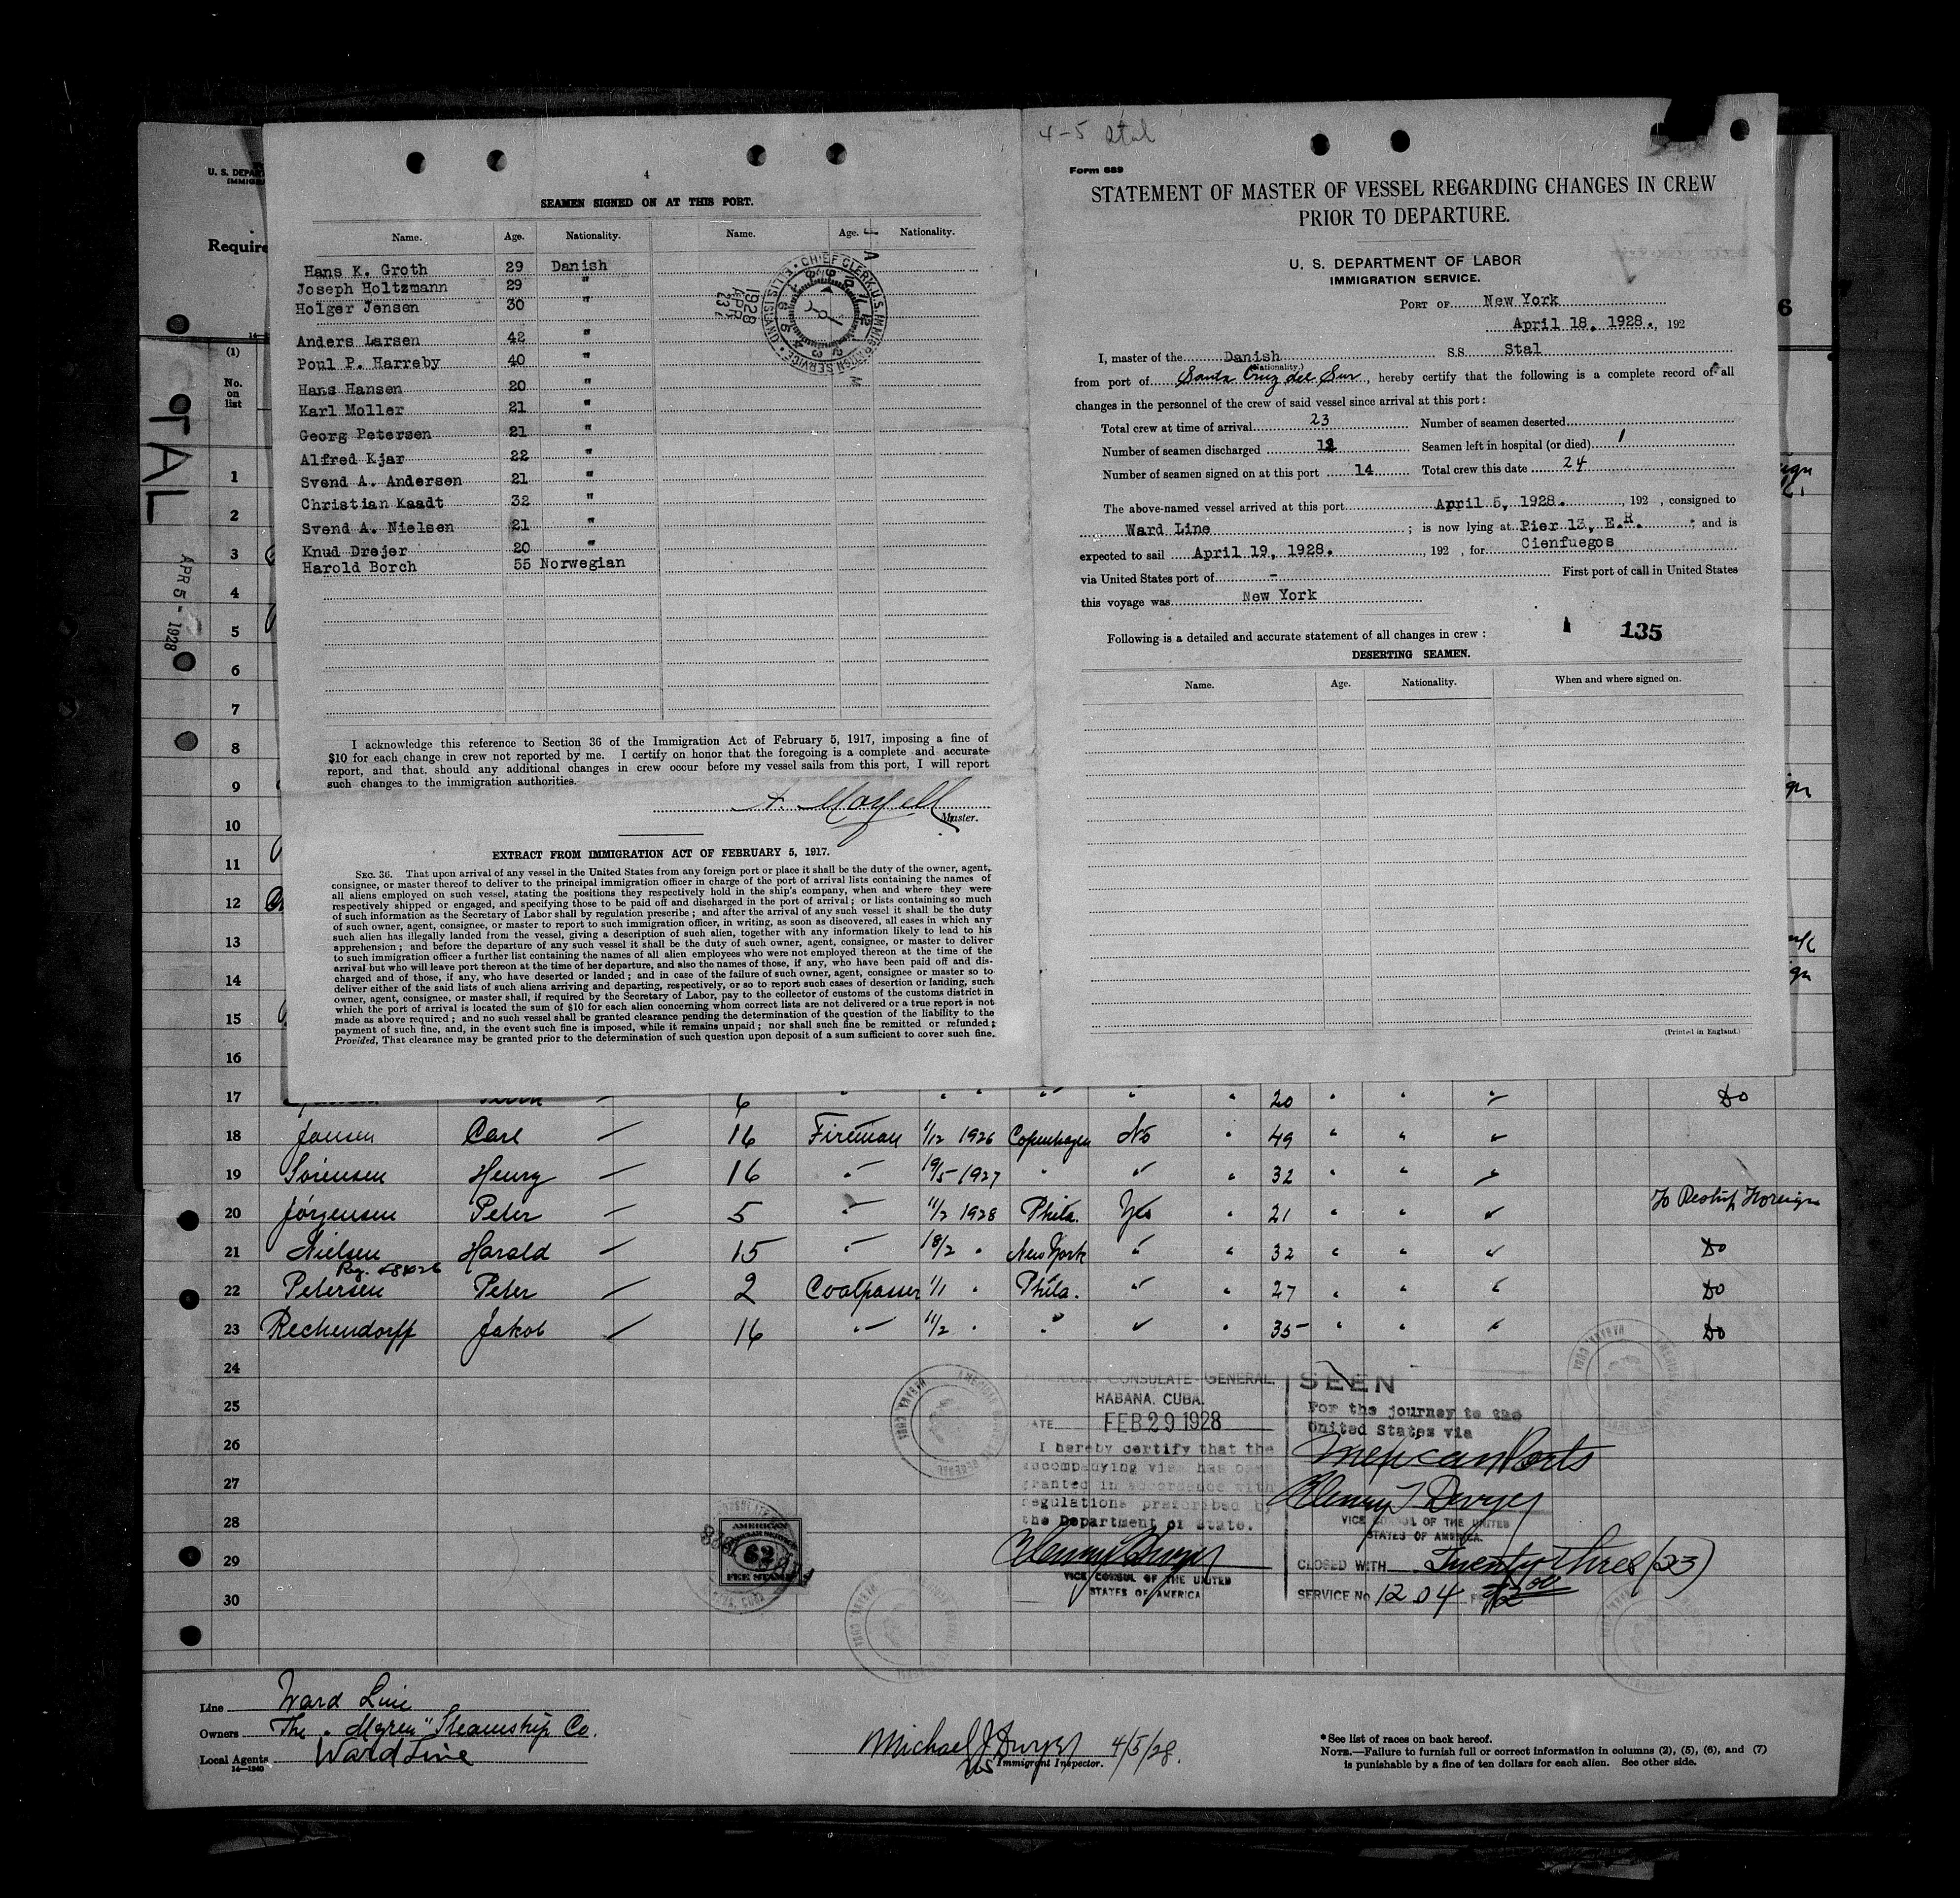 4
SEAMEN SIGNED ON AT THIS PORT.
Name. Age. Nationality. Name. Age. Nationality.
Hans K. Groth 29 Danish
Joseph Holtzmann 29 "
Holger Jensen 30 "
Anders Larsen 42 "
Poul P. Harreby 40 "
Hans Hansen 20 "
Karl Moller 21 "
Georg Petersen 21 "
Alfred Kjar 22 "
Svend A. Andersen 21 "
Christian Kaadt 32 "
Svend A. Nielsen 21 "
Knud Drejer 20 "
Harold Borch 55 Norwegian
CHIEF CLERK, U.S. IMMIGRATION SERVICE · ELLIS ISLAND
1928 APR 23
I acknowledge this reference to Section 36 of the Immigration Act of February 5, 1917, imposing a fine of
$10 for each change in crew not reported by me. I certify on honor that the foregoing is a complete and accurate
report, and that, should any additional changes in crew occur before my vessel sails from this port, I will report
such changes to the immigration authorities.
Master.
EXTRACT FROM IMMIGRATION ACT OF FEBRUARY 5, 1917.
SEC. 36. That upon arrival of any vessel in the United States from any foreign port or place it shall be the duty of the owner, agent,
consignee, or master thereof to deliver to the principal immigration officer in charge of the port of arrival lists containing the names of
all aliens employed on such vessel, stating the positions they respectively hold in the ship's company, when and where they were
respectively shipped or engaged, and specifying those to be paid off and discharged in the port of arrival; or lists containing so much
of such information as the Secretary of Labor shall by regulation prescribe; and after the arrival of any such vessel it shall be the duty
of such owner, agent, consignee, or master to report to such immigration officer, in writing, as soon as discovered, all cases in which any
such alien has illegally landed from the vessel, giving a description of such alien, together with any information likely to lead to his
apprehension; and before the departure of any such vessel it shall be the duty of such owner, agent, consignee, or master to deliver
to such immigration officer a further list containing the names of all alien employees who were not employed thereon at the time of the
arrival but who will leave port thereon at the time of her departure, and also the names of those, if any, who have been paid off and dis-
charged and of those, if any, who have deserted or landed; and in case of the failure of such owner, agent, consignee or master so to
deliver either of the said lists of such aliens arriving and departing, respectively, or so to report such cases of desertion or landing, such
owner, agent, consignee, or master shall, if required by the Secretary of Labor, pay to the collector of customs of the customs district in
which the port of arrival is located the sum of $10 for each alien concerning whom correct lists are not delivered or a true report is not
made as above required; and no such vessel shall be granted clearance pending the determination of the question of the liability to the
payment of such fine, and, in the event such fine is imposed, while it remains unpaid; nor shall such fine be remitted or refunded;
Provided, That clearance may be granted prior to the determination of such question upon deposit of a sum sufficient to cover such fine.
4-5 Stal
Form 689
STATEMENT OF MASTER OF VESSEL REGARDING CHANGES IN CREW
PRIOR TO DEPARTURE.
U. S. DEPARTMENT OF LABOR
IMMIGRATION SERVICE.
PORT OF New York
April 18, 1928., 192
I, master of the Danish S.S. Stal
(Nationality.)
from port of Santa Cruz del Sur, hereby certify that the following is a complete record of all
changes in the personnel of the crew of said vessel since arrival at this port:
Total crew at time of arrival 23 Number of seamen deserted
Number of seamen discharged 12 Seamen left in hospital (or died) 1
Number of seamen signed on at this port 14 Total crew this date 24
The above-named vessel arrived at this port April 5, 1928. , 192 , consigned to
Ward Line ; is now lying at Pier 13, E.R. ; and is
expected to sail April 19, 1928. , 192 , for Cienfuegos
via United States port of - First port of call in United States
this voyage was New York
Following is a detailed and accurate statement of all changes in crew: 135
DESERTING SEAMEN.
Name. Age. Nationality. When and where signed on.
(Printed in England.)
U. S. DEPAR
IMMIGRA
Require
6
14
(1)
No. on list
STAL
APR 5 - 1928
1
2
3
4
5
6
7
8
9
10
11
12
13
14
15
16
17 6 " " " " " " 20 " " " Do
18 Jansen Carl — 16 Fireman 1/12 1926 Copenhagen No " 49 " " "
19 Sørensen Henry — 16 " 19/5 1927 " " " 32 " " "
20 Jørgensen Peter — 5 " 11/2 1928 Phila. Yes " 21 " " " To Reship Foreign
21 Nielsen Harald — 15 " 18/2 " New York " " 32 " " " Do
22 Petersen Peter — 2 Coalpasser 1/1 " Phila. " " 27 " " " Do
23 Rechendorff Jakob — 16 " 11/2 " " " " 35 " " " Do
24
25
26
27
28
29
30
AMERICAN CONSULATE GENERAL.
HABANA, CUBA.
DATE FEB 29 1928
I hereby certify that the
accompanying visa has been
granted in accordance with
regulations prescribed by
the Department of State.
VICE CONSUL OF THE UNITED
STATES OF AMERICA
SEEN
For the journey to the
United States via
Mexican Ports
VICE CONSUL OF THE UNITED
STATES OF AMERICA.
CLOSED WITH Twenty three (23)
SERVICE No 1204
AMERICAN
CONSULAR SERVICE
FEE STAMP
Line Ward Line
Owners The "Myren" Steamship Co.
Local Agents Ward Line
14—1240
Michael J. Dwyer 4/5/28.
US Immigrant Inspector.
* See list of races on back hereof.
NOTE.—Failure to furnish full or correct information in columns (2), (5), (6), and (7)
is punishable by a fine of ten dollars for each alien. See other side.